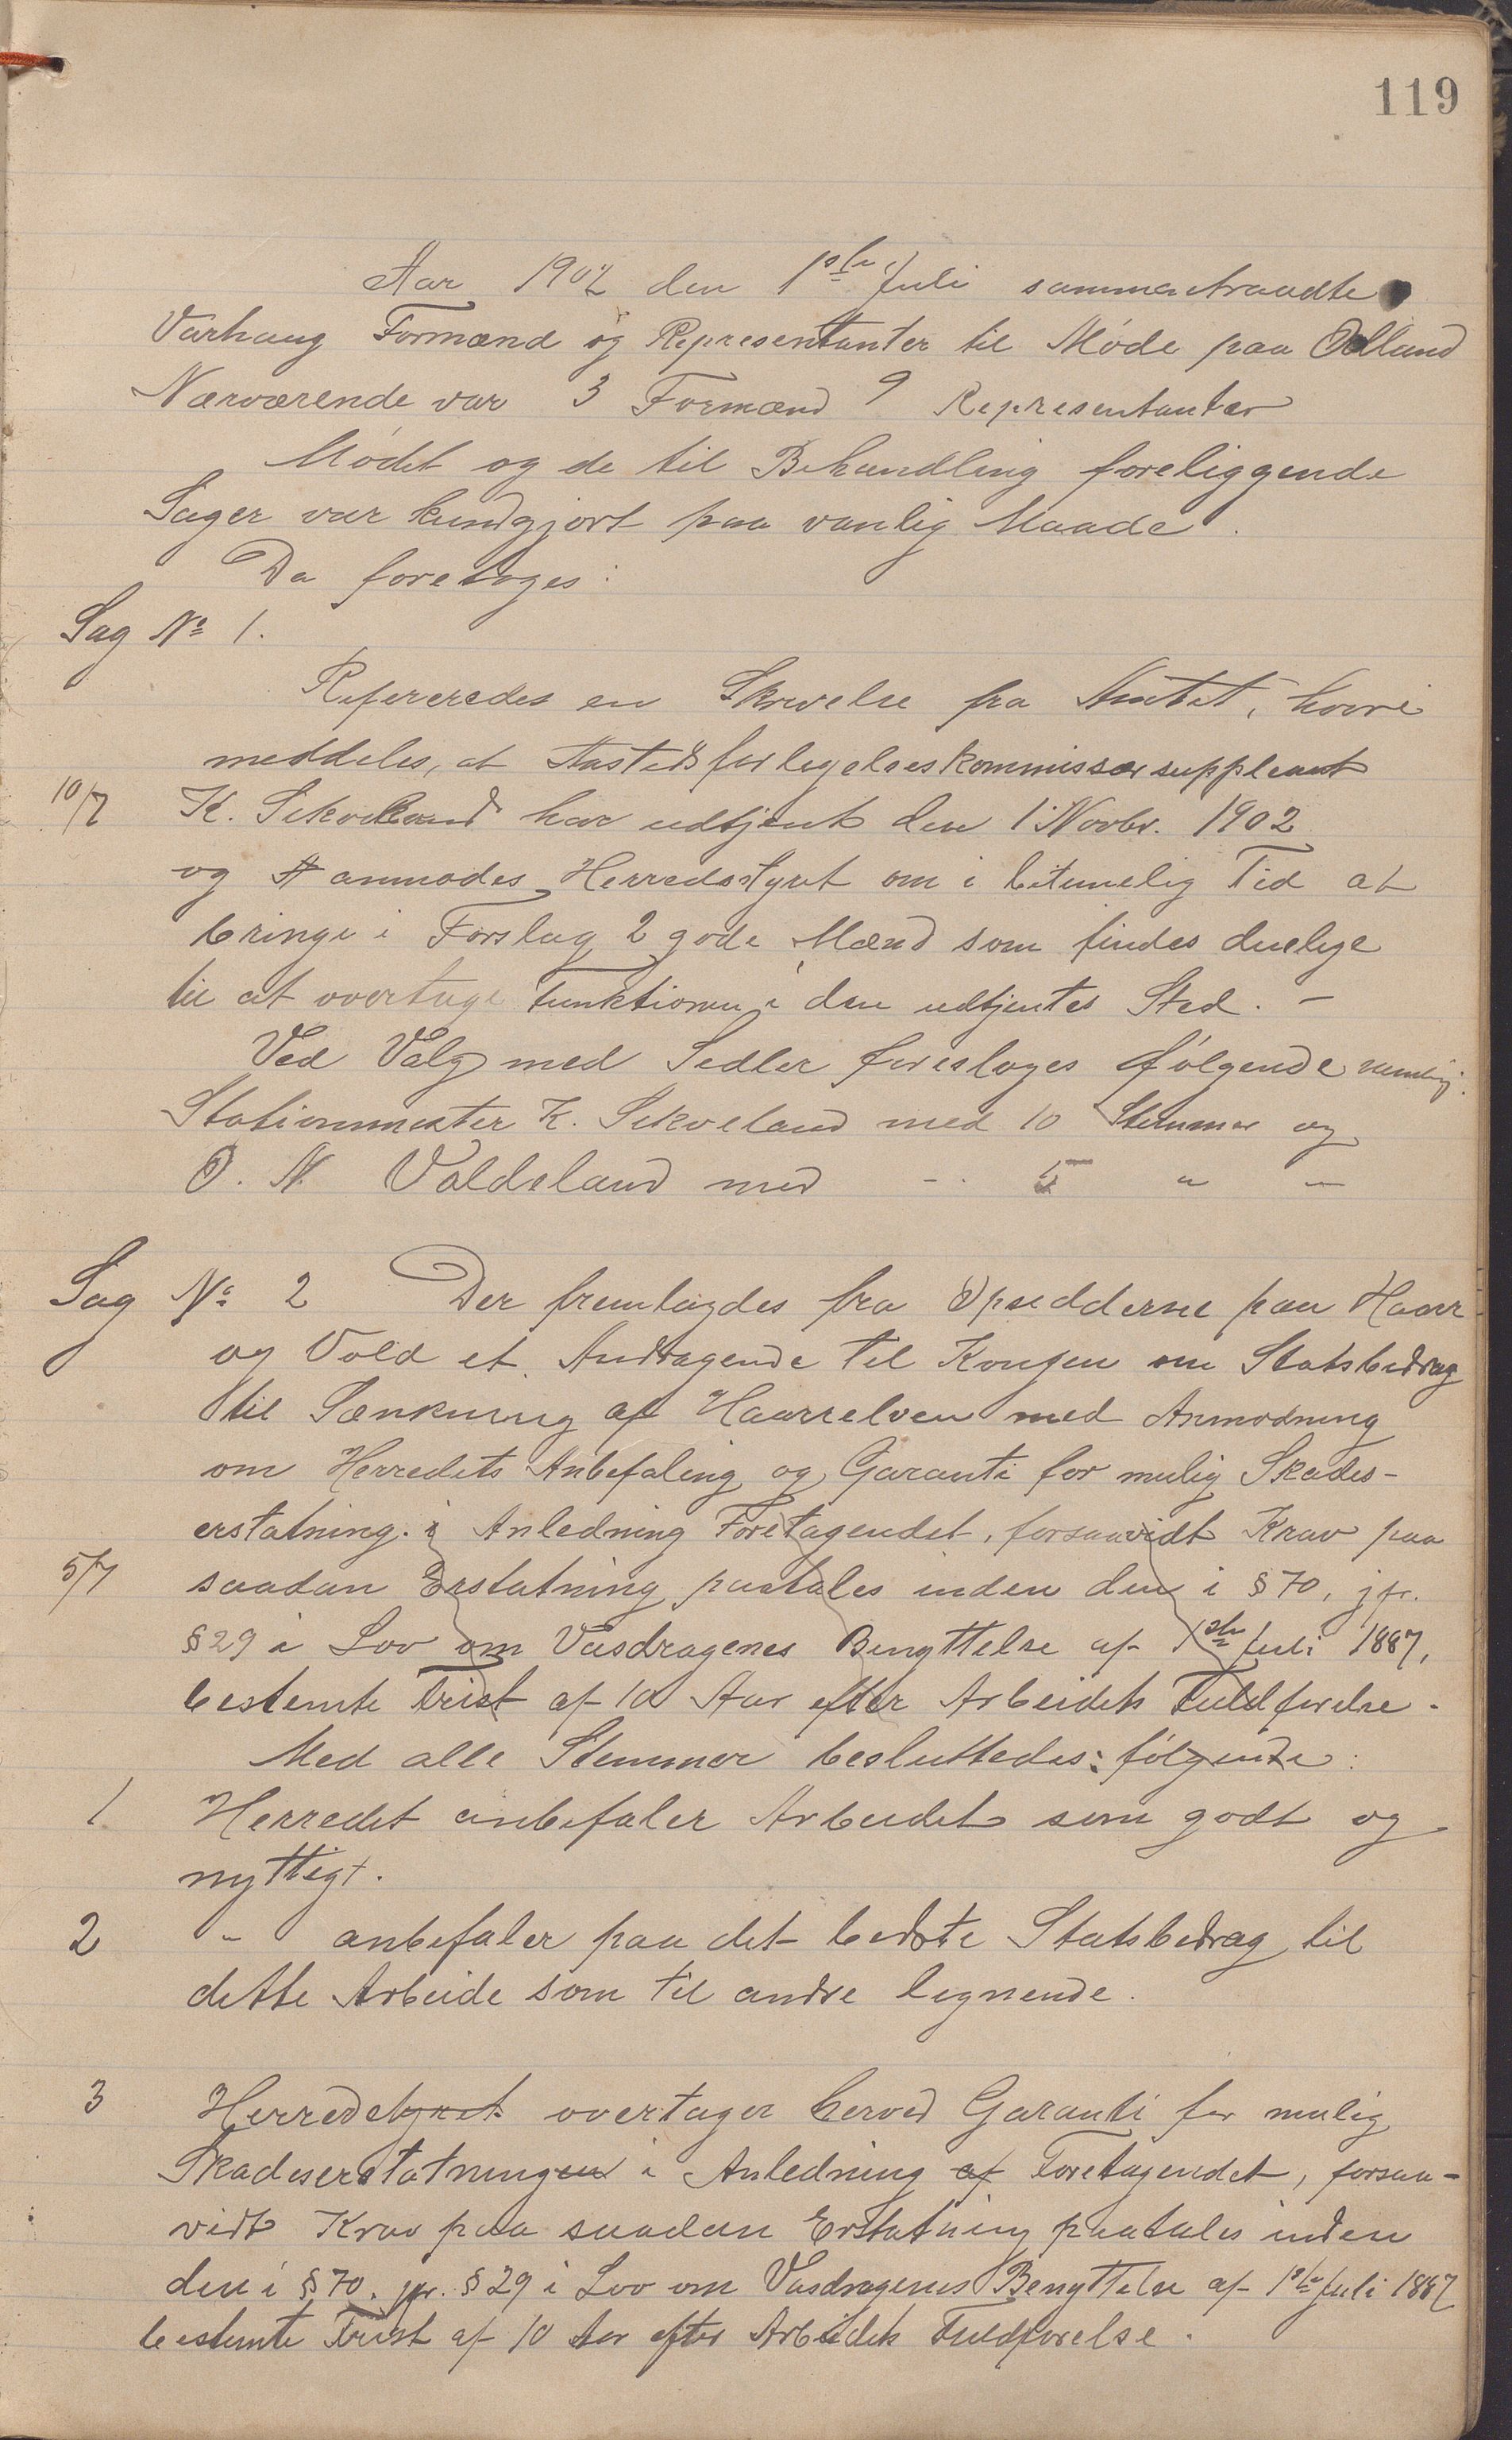 119
Aar 1902 den 1ste Juli sammentraadte
Varhaug Formænd og Representanter til Møde paa Odland
Nærværende var 3 Formænd 9 Representanter
Mødet og de til Behandling foreliggende
Sager var kundgjort paa vanlig Maade.
Da foretoges:
Sag No 1.
Refereredes en Skrivelse fra Amtet, hvori
meddeles, at Aastedsforligelseskommissærsuppleant
10/7 K. Sikveland har udtjent den 1 Novbr. 1902
og anmodes Herredsstyret om i betimelig Tid at
bringe i Forslag 2 gode Mænd som findes duelige
til at overtage Funktionen i den udtjentes Sted. -
Ved Valg med Sedler foresloges følgende nemlig
Stationmester K. Sikveland med 10 Stemmer og
O. N. Valdeland med - 5 " -
Sag No 2 Der fremlagdes fra Opsidderne paa Haarr
og Vold et Andragende til Kongen om Statsbidrag
til Sænkning af Haarrelven med Anmodning
om Herredets Anbefaling og Garanti for mulig Skades-
erstatning. i Anledning Foretagendet, forsaavidt Krav paa
5/7 saadan Erstatning paatales inden den i § 70, jfr.
§ 29 i Lov om Vasdragenes Benyttelse af 1ste Juli 1887,
bestemte Frist af 10 Aar efter Arbeidets Fuldførelse.
Med alle Stemmer besluttedes: følgende:
1 Herredet anbefaler Arbeidet som godt og
nyttigt.
2 " anbefaler paa det bedste Statsbidrag til
dette Arbeide som til andre lignende.
3 Herredstyret overtager herved Garanti for mulig
Skadeserstatningen i Anledning af Foretagendet, forsaa-
vidt Krav paa saadan Erstatning paatales inden
den i § 70, jfr. § 29 i Lov om Vasdragenes Benyttelse af 1ste Juli 1887
bestemte Frist af 10 Aar efter Arbeidets Fuldførelse.